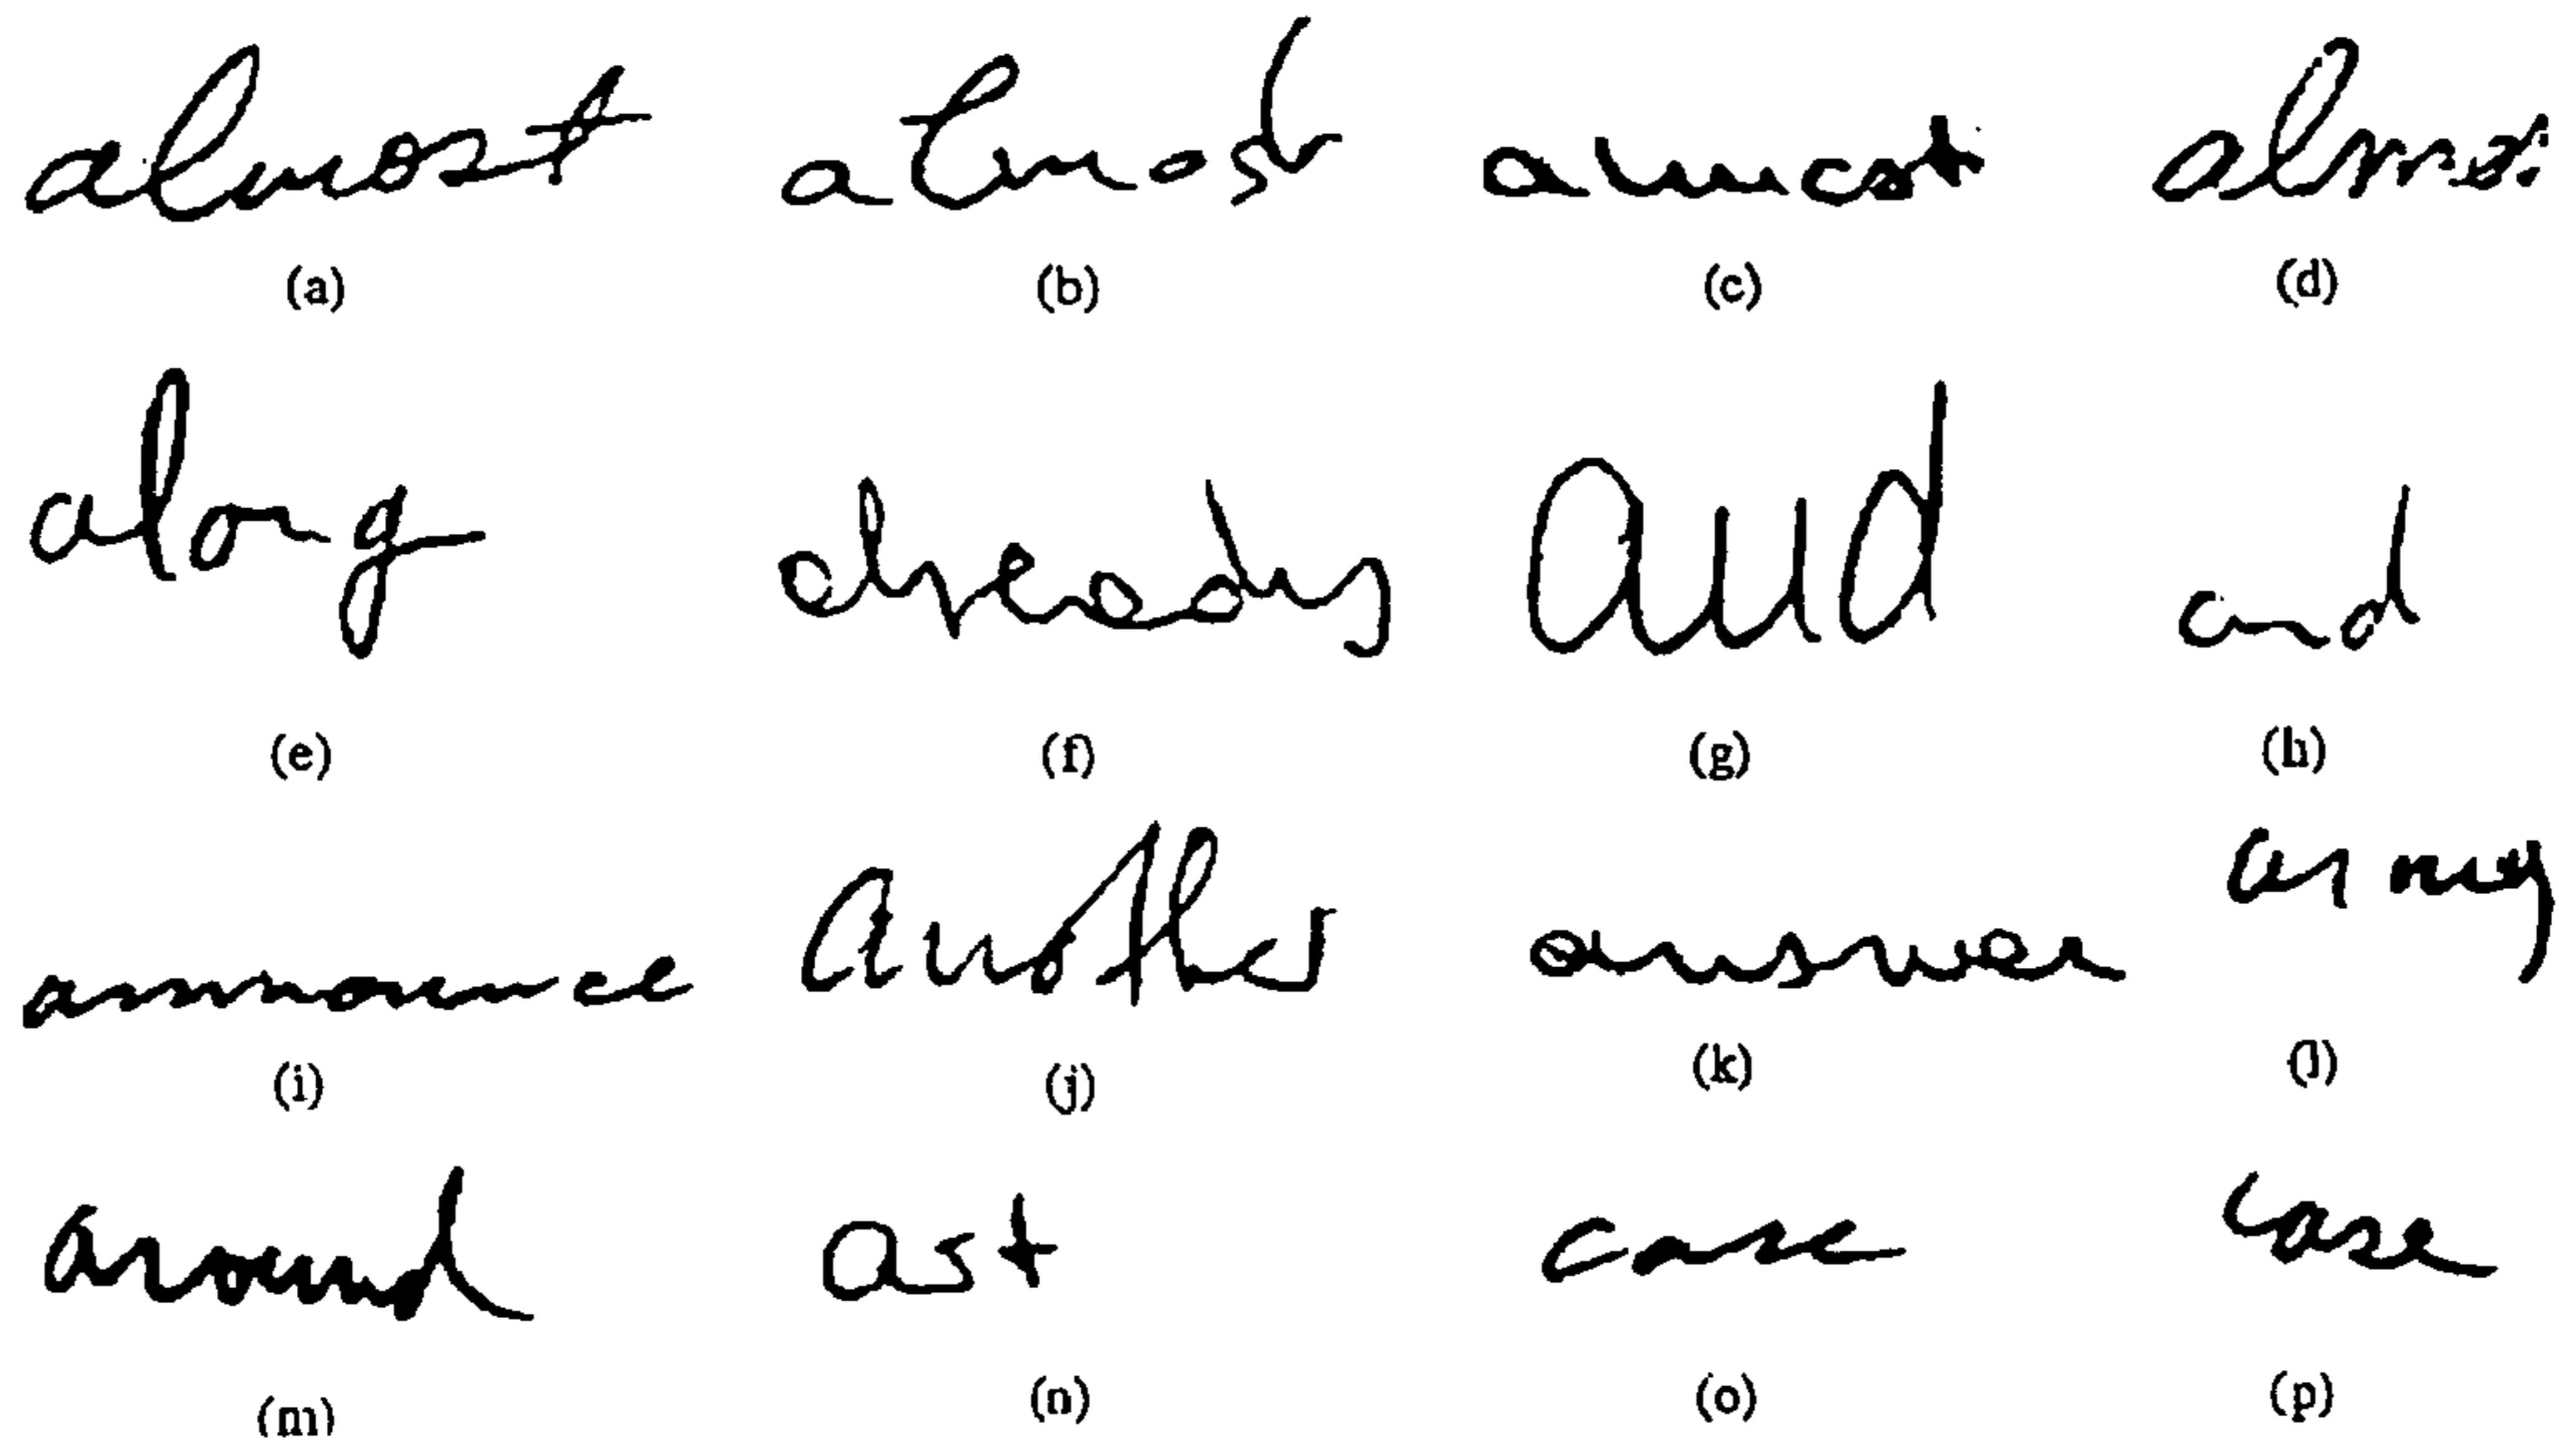 almost almost almost almost
(a) (b) (c) (d)
along already and and
(e) (f) (g) (h)
announce another answer army
(i) (j) (k) (l)
around ast case case
(m) (n) (o) (p)